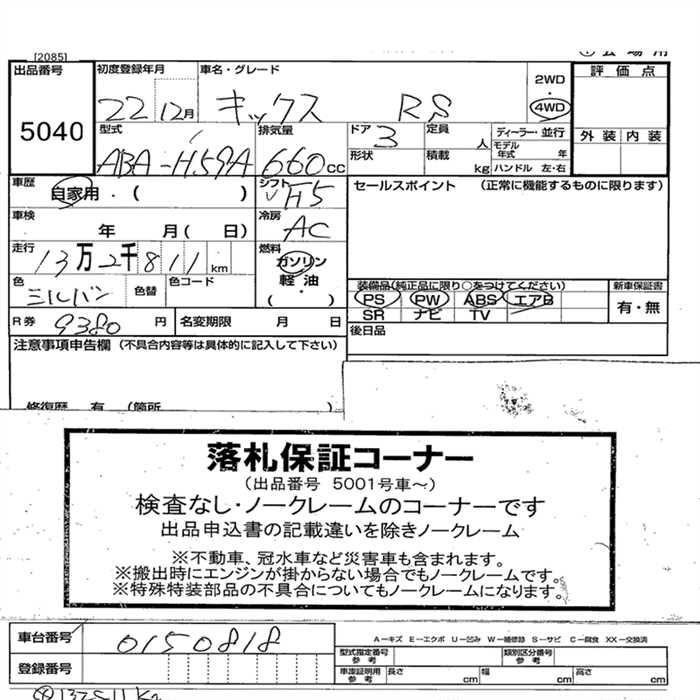 [2085]
出品番号
5040
初度登録年月
22 12月
車名・グレード
キックス RS
2WD
・
4WD
評価点
外装 内装
型式
ABA-H59A
排気量
660cc
ドア
3
定員
人
ディーラー・並行
モデル年式 年
形状
積載
kg
ハンドル 左・右
車歴
自家用・( )
シフト
H5
セールスポイント (正常に機能するものに限ります)
車検
年 月( 日)
冷房
AC
走行
13万2千811km
燃料
ガソリン
軽油
( ・ )
色
シルバン
色替
色コード
装備品(純正品に限り○をつけてください)
新車保証書
PS PW ABS エアB
有・無
SR ナビ TV
R券 9380円
名変期限 月 日
後日品
注意事項申告欄 (不具合内容等は具体的に記入して下さい)
修復歴 有 (箇所 )
落札保証コーナー
(出品番号 5001号車~)
検査なし・ノークレームのコーナーです
出品申込書の記載違いを除きノークレーム
※不動車、冠水車など災害車も含まれます。
※搬出時にエンジンが掛からない場合でもノークレームです。
※特殊特装部品の不具合についてもノークレームになります。
車台番号
0150818
A-キズ E-エクボ U-凹み W-補修跡 S-サビ C-腐食 XX-交換済
型式指定番号
参考
類別区分番号
参考
登録番号
車庫証明用
参考
長さ cm 幅 cm 高さ cm